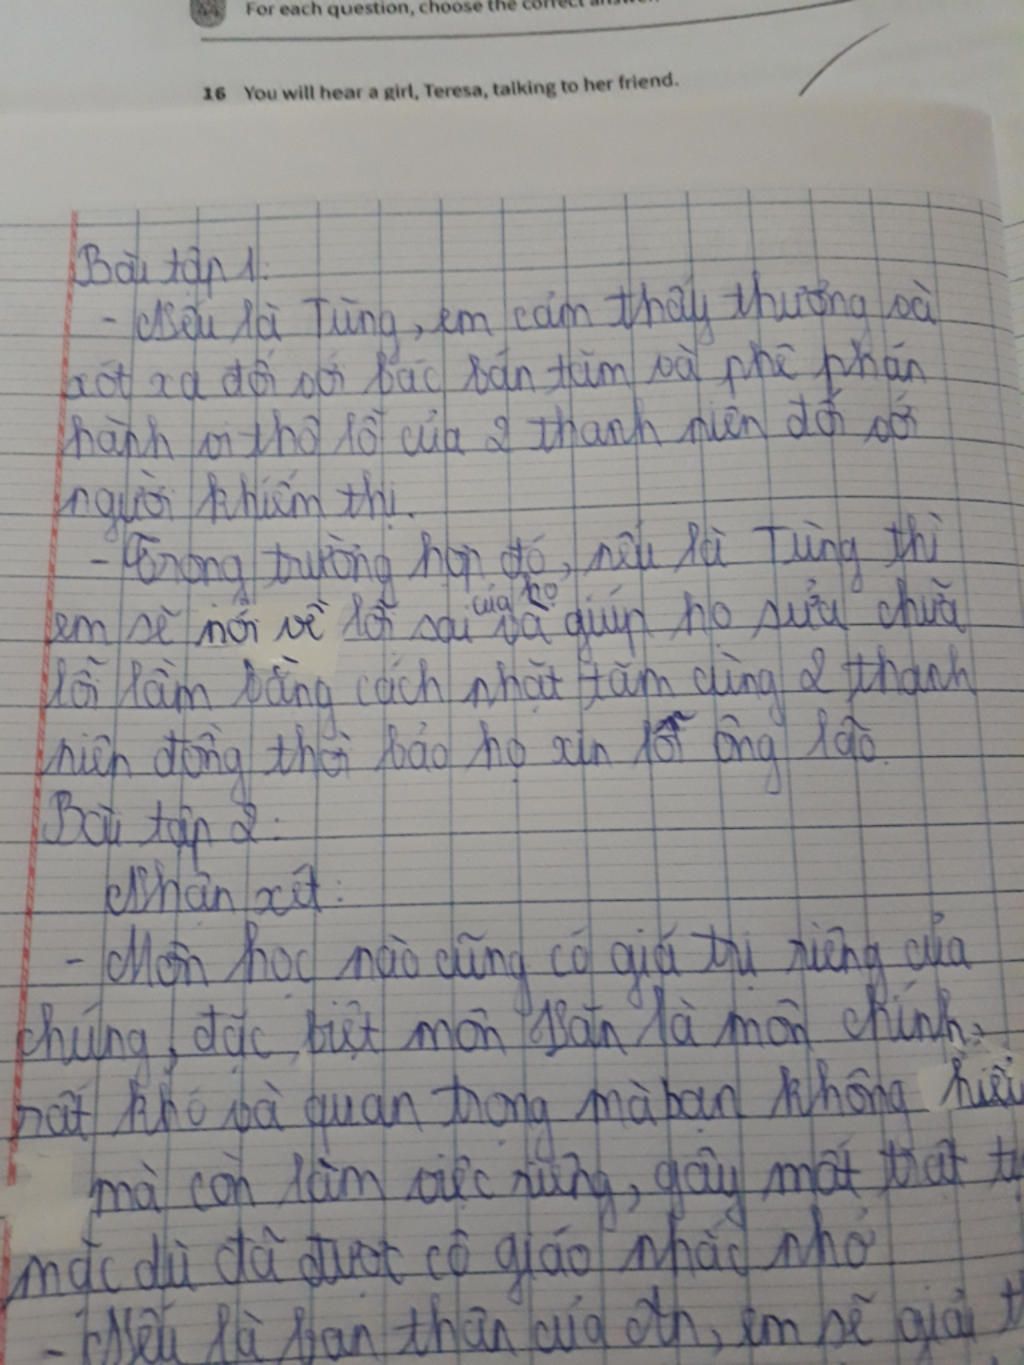 For each question, choose the correct answer.
16 You will hear a girl, Teresa, talking to her friend.
Bài tập 1:
- Nếu là Tùng, em cảm thấy thương và
xót xa đối với bác bán tăm và phê phán
hành vi thô lỗ của 2 thanh niên đối với
người khiếm thị.
- Trong trường hợp đó, nếu là Tùng thì
em sẽ nói về lỗi sai của họ và giúp họ sửa chữa
lỗi lầm bằng cách nhặt tăm cùng 2 thanh
niên đồng thời bảo họ xin lỗi ông lão.
Bài tập 2:
Nhận xét:
- Môn học nào cũng có giá trị riêng của
chúng, đặc biệt môn Văn là môn chính,
rất khó và quan trọng mà bạn không hiểu
mà còn làm việc riêng, gây mất trật
mặc dù đã được cô giáo nhắc nhở
- Nếu là bạn thân của An, em sẽ giải